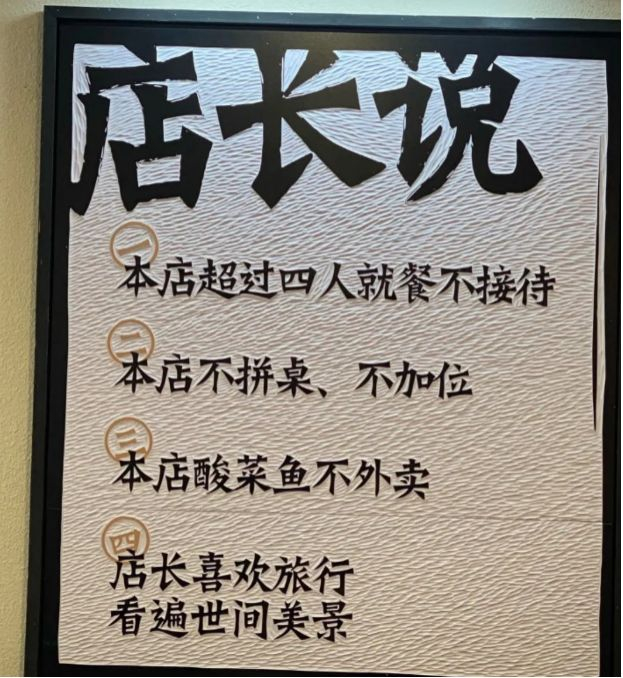 店长说
一
本店超过四人就餐不接待
二
本店不拼桌、不加位
三
本店酸菜鱼不外卖
四
店长喜欢旅行
看遍世间美景